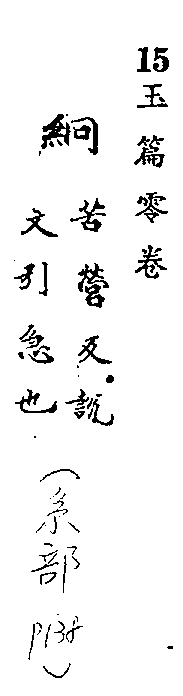 15玉篇零卷
絅
苦營反說
文引急也
(糸部